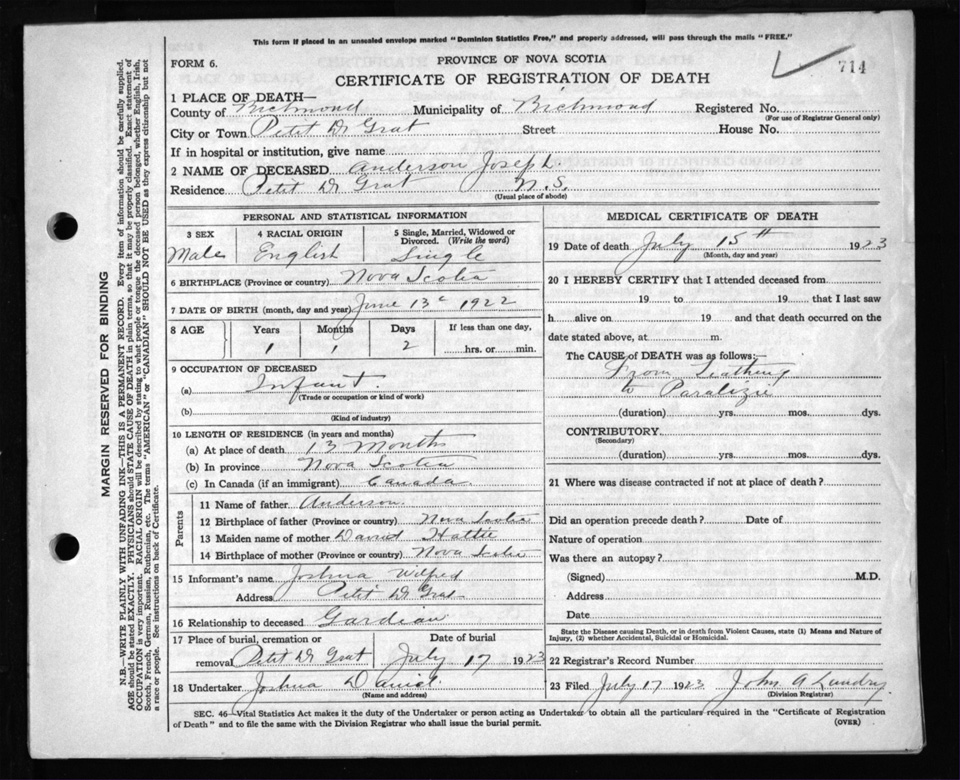 This form if placed in an unsealed envelope marked "Dominion Statistics Free," and properly addressed, will pass through the mails "FREE."
PROVINCE OF NOVA SCOTIA
FORM 6.
714
CERTIFICATE OF REGISTRATION OF DEATH
1 PLACE OF DEATH—
County of Richmond Municipality of Richmond Registered No.
(For use of Registrar General only)
City or Town Petit D Grat Street House No.
If in hospital or institution, give name
2 NAME OF DECEASED Anderson Joseph
Residence Petit D Grat N.S.
(Usual place of abode)
PERSONAL AND STATISTICAL INFORMATION
3 SEX 4 RACIAL ORIGIN 5 Single, Married, Widowed or Divorced. (Write the word)
Male English Single
6 BIRTHPLACE (Province or country) Nova Scotia
7 DATE OF BIRTH (month, day and year) June 13 1922
8 AGE Years Months Days If less than one day,
1 1 2 hrs. or min.
9 OCCUPATION OF DECEASED
(a) Infant.
(Trade or occupation or kind of work)
(b)
(Kind of industry)
10 LENGTH OF RESIDENCE (in years and months)
(a) At place of death 13 Months
(b) In province Nova Scotia
(c) In Canada (if an immigrant) Canada
Parents
11 Name of father Anderson.
12 Birthplace of father (Province or country) Nova Scotia
13 Maiden name of mother David Hattie
14 Birthplace of mother (Province or country) Nova Scotia
15 Informant's name Joshua Wilfred
Address Petit D Grat
16 Relationship to deceased Gardian
17 Place of burial, cremation or Date of burial
removal Petit D Grat July 17 1923
18 Undertaker Joshua
(Name and address)
MEDICAL CERTIFICATE OF DEATH
19 Date of death July 15th 1923
(Month, day and year)
20 I HEREBY CERTIFY that I attended deceased from
19 to 19 that I last saw
h alive on 19 and that death occurred on the
date stated above, at m.
The CAUSE of DEATH was as follows:—
From Teathing
to Paralizie
(duration) yrs. mos. dys.
CONTRIBUTORY
(Secondary)
(duration) yrs. mos. dys.
21 Where was disease contracted if not at place of death?
Did an operation precede death? Date of
Nature of operation
Was there an autopsy?
(Signed) M.D.
Address
Date
State the Disease causing Death, or in death from Violent Causes, state (1) Means and Nature of
Injury, (2) whether Accidental, Suicidal or Homicidal.
22 Registrar's Record Number
23 Filed July 17 1923 John A Landry
(Division Registrar)
SEC. 46—Vital Statistics Act makes it the duty of the Undertaker or person acting as Undertaker to obtain all the particulars required in the "Certificate of Registration
of Death" and to file the same with the Division Registrar who shall issue the burial permit.
(OVER)
MARGIN RESERVED FOR BINDING
N.B.—WRITE PLAINLY WITH UNFADING INK—THIS IS A PERMANENT RECORD. Every item of information should be carefully supplied.
AGE should be stated EXACTLY. PHYSICIANS should STATE CAUSE OF DEATH in plain terms, so that it may be properly classified. Exact statement of
OCCUPATION is very important. RACIAL ORIGIN will be described by stating to what people or tongue the deceased person belonged, whether English, Irish,
Scotch, French, German, Russian, Ruthenian, etc. The terms "AMERICAN" or "CANADIAN" SHOULD NOT BE USED as they express citizenship but not
a race or people. See instructions on back of Certificate.